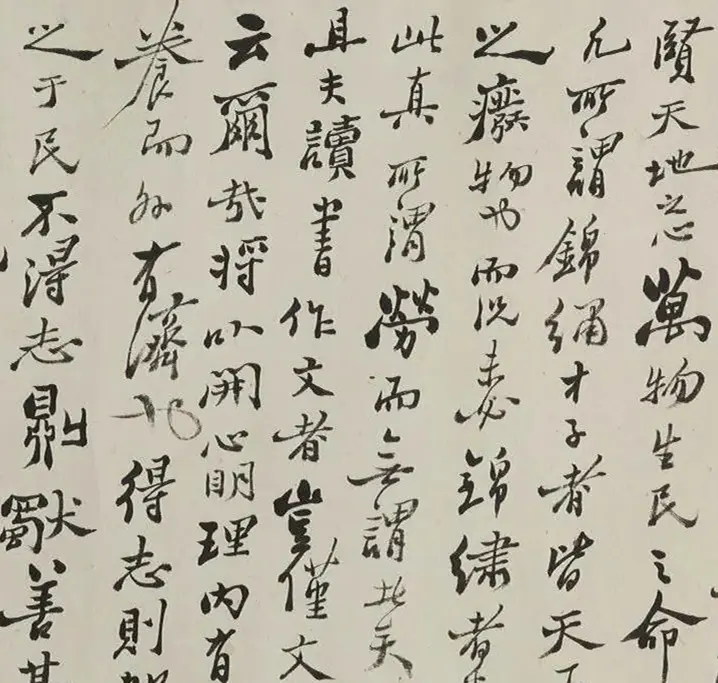 賢天地之心萬物生民之命
凡所謂錦繡才子者皆天下
之廢物也而況未必錦繡者
此真所謂勞而無謂者矣
且夫讀書作文者豈僅文
云爾哉將以開心明理內有
養而外有濟也得志則加
之于民不得志則獨善其